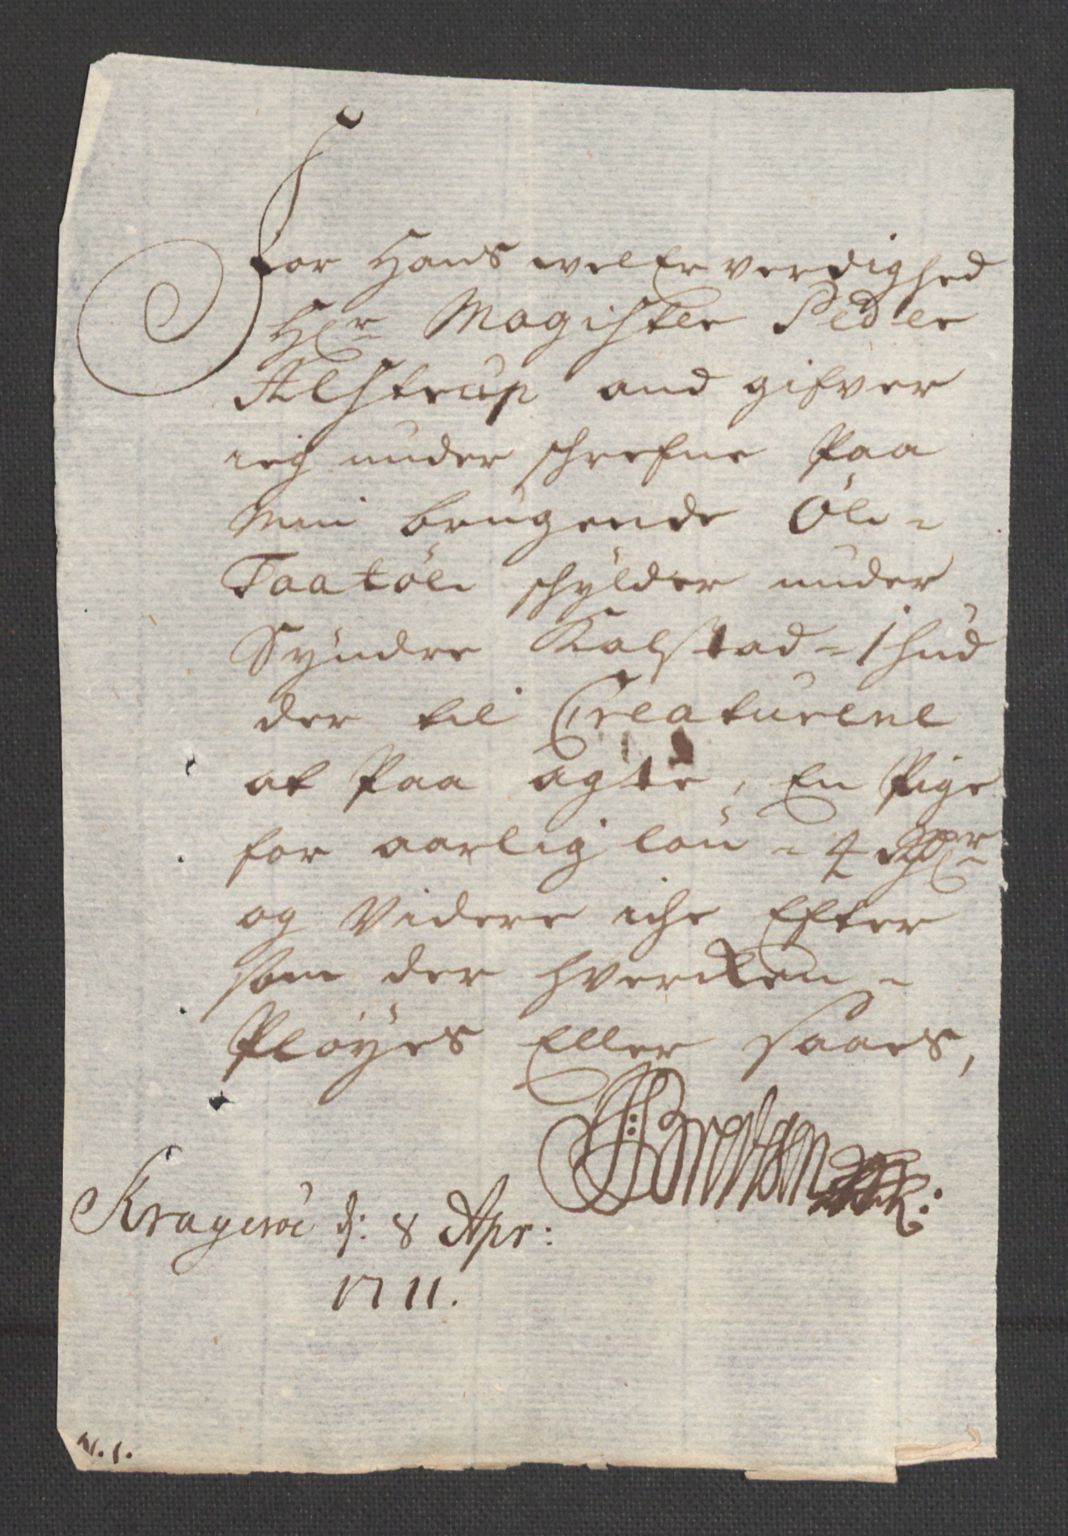 For Hans wel Er verdighed
Hr Magister Peder
Alstrup and gifver
ieg under schrefne Paa
Min brugende Öde-
Taatöde schylder under
Syndre Kalstad - 1 hud
der til Creaturene
at Paa agte, En Pige
for aarlig lön - 4 Rdr
og Videre iche Efter
som der hvercken -
Pløyes Eller saaes,
Kragerøe d: 8 Apr:
1711.
N. 1.